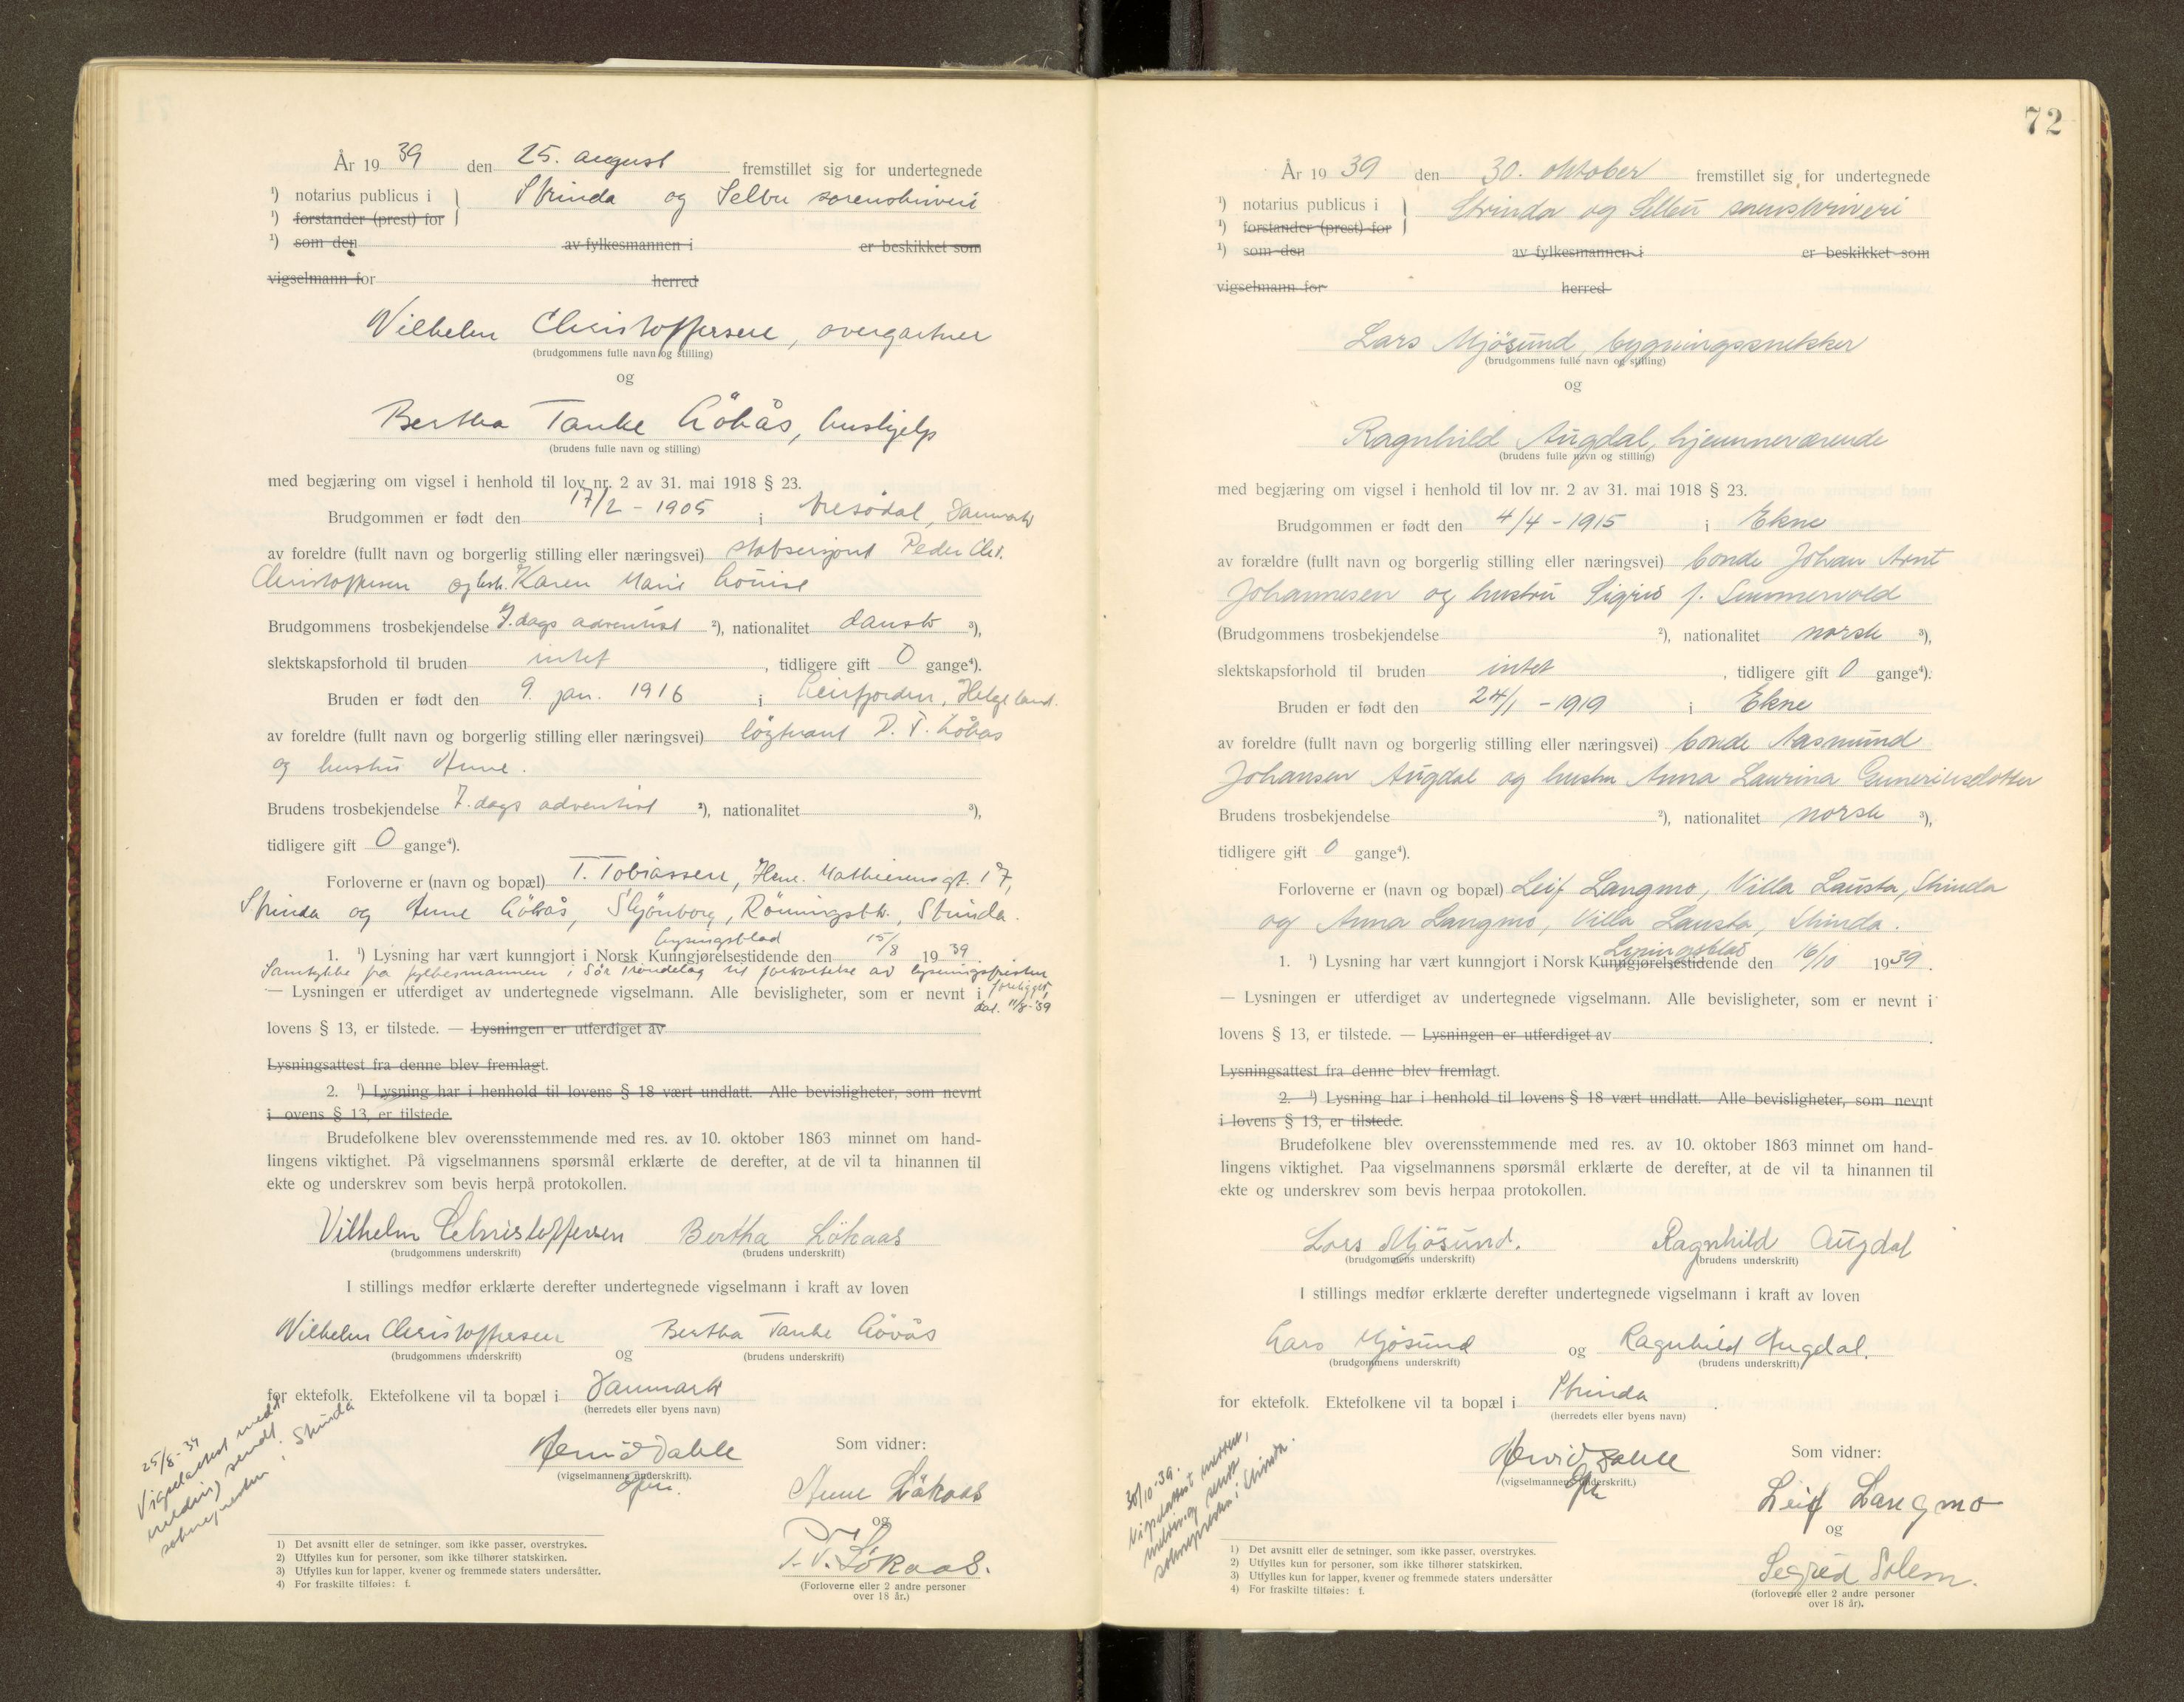 År 1939 den 25. august fremstillet sig for undertegnede
¹) notarius publicus i Strinda og Selbu sorenskriveri
¹) forstander (prest) for
¹) som den av fylkesmannen i er beskikket som
vigselmann for herred
Vilhelm Christoffersen, overgartner
(brudgommens fulle navn og stilling)
og
Bertha Tanke Lökås, hushjelp
(brudens fulle navn og stilling)
med begjæring om vigsel i henhold til lov nr. 2 av 31. mai 1918 § 23.
Brudgommen er født den 17/2 - 1905 i Danmark
av foreldre (fullt navn og borgerlig stilling eller næringsvei) Peder Chr.
Christoffersen og Karen Marie Louise
Brudgommens trosbekjendelse 7. dags adventist ²), nationalitet dansk ³),
slektskapsforhold til bruden intet, tidligere gift 0 gange⁴).
Bruden er født den 9. jan. 1916 i Leirfjorden, Helgeland.
av foreldre (fullt navn og borgerlig stilling eller næringsvei) P. T. Lökås
og hustru Anne.
Brudens trosbekjendelse 7. dags adventist ²), nationalitet ³),
tidligere gift 0 gange⁴).
Forloverne er (navn og bopæl) T. Tobiassen, Henr. Mathiesens gt. 17,
Strinda og Anne Lökås, Skjönborg, Rönningsbk., Strinda.
Lysingsblad
1. ¹) Lysning har vært kunngjort i Norsk Kunngjørelsestidende den 15/8 1939.
Samtykke fra fylkesmannen i Sör Tröndelag til forkortelse av lysningsfristen
foreligger,
dat. 11/8-'39
— Lysningen er utferdiget av undertegnede vigselmann. Alle bevisligheter, som er nevnt i
lovens § 13, er tilstede. — Lysningen er utferdiget av
Lysningsattest fra denne blev fremlagt.
2. ¹) Lysning har i henhold til lovens § 18 vært undlatt. Alle bevisligheter, som nevnt
i ovens § 13, er tilstede.
Brudefolkene blev overensstemmende med res. av 10. oktober 1863 minnet om hand-
lingens viktighet. På vigselmannens spørsmål erklærte de derefter, at de vil ta hinannen til
ekte og underskrev som bevis herpå protokollen.
Vilhelm Christoffersen Bertha Lökaas
(brudgommens underskrift) (brudens underskrift)
I stillings medfør erklærte derefter undertegnede vigselmann i kraft av loven
Vilhelm Christoffersen og Bertha Tanke Lökås
(brudgommens underskrift) (brudens underskrift)
for ektefolk. Ektefolkene vil ta bopæl i Danmark
(herredets eller byens navn)
25/8-39
Vigselattest medd.
melding sendt
soknepresten i Strinda
Arvid Dahle
(vigselmannens underskrift).
Som vidner:
Anne Lökaas
og
P. T. Lökaas.
(Forloverne eller 2 andre personer
over 18 år.)
1) Det avsnitt eller de setninger, som ikke passer, overstrykes.
2) Utfylles kun for personer, som ikke tilhører statskirken.
3) Utfylles kun for lapper, kvener og fremmede staters undersåtter.
4) For fraskilte tilføies: f.
72
År 1939 den 30. oktober fremstillet sig for undertegnede
¹) notarius publicus i Strinda og Selbu sorenskriveri
¹) forstander (prest) for
¹) som den av fylkesmannen i er beskikket som
vigselmann for herred
Lars Mjösund, bygningssnekker
(brudgommens fulle navn og stilling)
og
Ragnhild Augdal, hjemmeværende
(brudens fulle navn og stilling)
med begjæring om vigsel i henhold til lov nr. 2 av 31. mai 1918 § 23.
Brudgommen er født den 4/4 - 1915 i Ekne
av forældre (fullt navn og borgerlig stilling eller næringsvei) bonde Johan Arnt
Johannesen og hustru Sigrid f.
(Brudgommens trosbekjendelse ²), nationalitet norsk ³),
slektskapsforhold til bruden intet, tidligere gift 0 gange⁴).
Bruden er født den 24/1 - 1919 i Ekne
av foreldre (fullt navn og borgerlig stilling eller næringsvei) bonde Aasmund
Johansen Augdal og hustru Anna Laurina Gunneriusdotter
Brudens trosbekjendelse ²), nationalitet norsk ³),
tidligere gift 0 gange⁴).
Forloverne er (navn og bopæl) Leif Langmo, Villa Lausta, Strinda
og Anna Langmo, Villa Lausta, Strinda.
Lysingsblad
1. ¹) Lysning har vært kunngjort i Norsk Kunngjørelsestidende den 16/10 1939.
— Lysningen er utferdiget av undertegnede vigselmann. Alle bevisligheter, som er nevnt i
lovens § 13, er tilstede. — Lysningen er utferdiget av
Lysningsattest fra denne blev fremlagt.
2. ¹) Lysning har i henhold til lovens § 18 vært undlatt. Alle bevisligheter, som nevnt
i lovens § 13, er tilstede.
Brudefolkene blev overensstemmende med res. av 10. oktober 1863 minnet om hand-
lingens viktighet. Paa vigselmannens spørsmål erklærte de derefter, at de vil ta hinannen til
ekte og underskrev som bevis herpaa protokollen.
Lars Mjösund. Ragnhild Augdal
(brudgommens underskrift) (brudens underskrift)
I stillings medfør erklærte derefter undertegnede vigselmann i kraft av loven
Lars Mjösund og Ragnhild Augdal.
(brudgommens underskrift) (brudens underskrift)
for ektefolk. Ektefolkene vil ta bopæl i Strinda.
(herredets eller byens navn)
30/10-39.
Vigselattest
melding sendt
soknepresten i Strinda.
Arvid Dahle
(vigselmannens underskrift.)
Som vidner:
Leif Langmo
og
Segred Solem.
(forloverne eller 2 andre personer
over 18 år).
1) Det avsnitt eller de setninger, som ikke passer, overstrykes.
2) Utfylles kun for personer, som ikke tilhører statskirken.
3) Utfylles kun for lapper, kvener og fremmede staters undersåtter
4) For fraskilte tilføies: f.